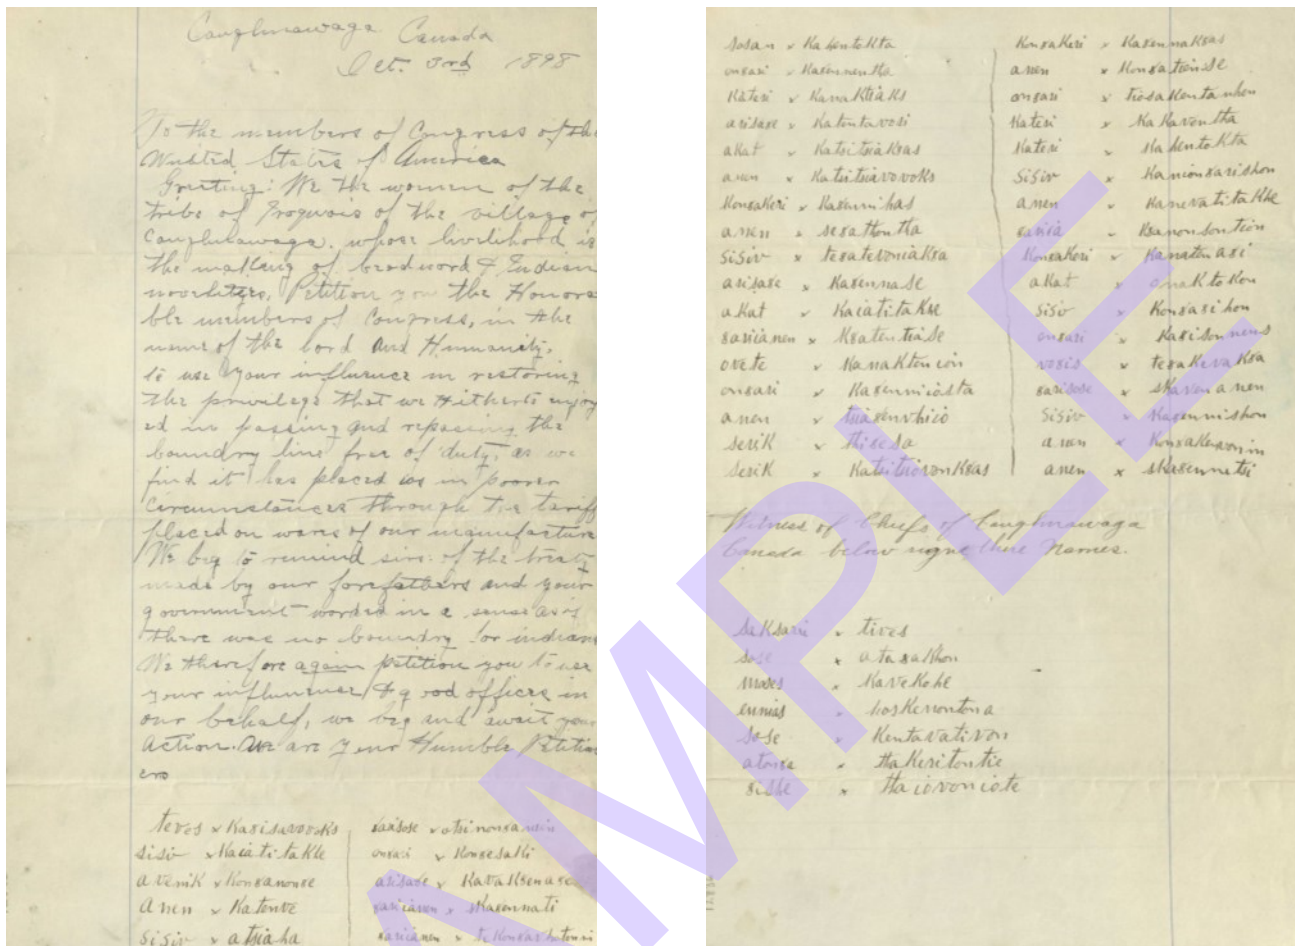 Caughnawaga Canada
Oct. 3rd 1898
To the members of Congress of the
United States of America
Greeting: We the women of the
tribe of Iroquois of the village of
Caughnawaga. whose livelihood is
the making of beadword & Indian
novelties, Petition you the Honora
ble members of Congress, in the
name of the Lord and Humanity,
to use your influence in restoring
the privilege that we Hitherto enjoy
ed in passing and repassing the
boundry line free of duty, as we
find it has placed us in poorer
Circumstances through the tariff
placed on wares of our manufacture
We beg to remind sirs: of the treaty
made by our forefathers and your
government worded in a sense as if
there was no boundry for indians
We therefore again petition you to use
your influence & good offices in
our behalf, we beg and await your
Action. We are your Humble Petition
ers
teres x Karisavovoks
sisiv x Kaiatitakle
avenik x Konsanonse
Anen x Katente
Sisiv x atsiaha
onsasi x Konsesaki
arisase x Kavaksenase
sasiianen x skasennati
sosan x Kahentokta
onsasi x Kasennentha
Katesi x Kanaktiaks
asisase x Katontavosi
akat x Katsitsiaksas
anen x Katsitsiavovoks
Konsakesi x Kasennihas
anen x sesathontha
Sisiv x tesatevoniaksa
asisase x Kasennase
akat x Kaiatitakse
sasiianen x Ksatentiase
ovete x Kanaktenion
onsasi x Kasenniiosta
anen x
sesik x thisesa
sesik x Katsitsiovonksas
Konsakesi x Kasennaksas
anen x Konsatienise
onsasi x tiosakentanhon
Katesi x Kakaventha
Katesi x Kahentokta
Sisiv x Kanionsasishon
anen x Kanevatitakhe
x Ksanonsontion
Konsakesi x Kanatenasi
akat x onaktokon
sisiv x Konsasihon
onsasi x Kasisonnens
x tesakevaksa
sasisose x skavenanen
Sisiv x Kasennishon
anen x Konsakesonnin
anen x skasennatsi
Witness of Chiefs of Caughnawaga
Canada below signe thire Names.
saksarie x tires
sose x atasakhon
moses x Kavekohe
ennias x hoskenontona
Sose x Kentavativon
atonsa x thakesitontie
sishe x thaiovoniote
AMPLE